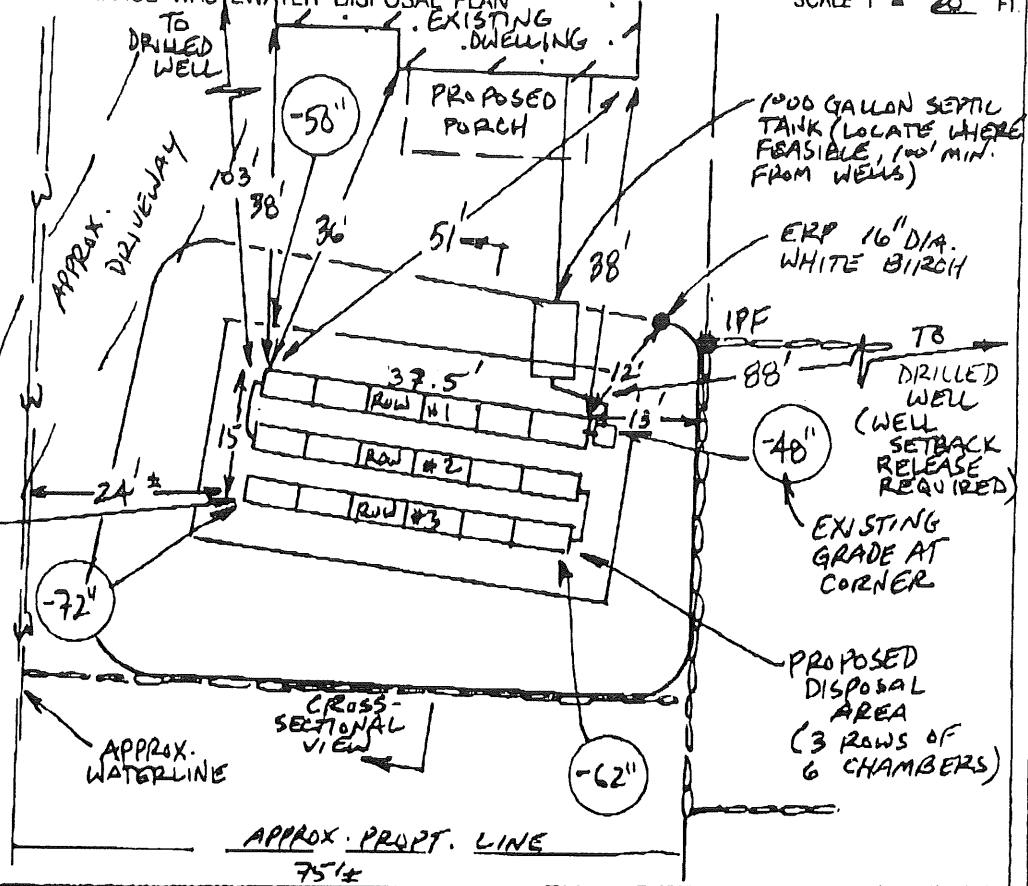 WASTEWATER DISPOSAL PLAN
SCALE 1" = 20 FT.
TO
DRILLED
WELL
EXISTING
DWELLING
-50"
PROPOSED
PORCH
1000 GALLON SEPTIC
TANK (LOCATE WHERE
FEASIBLE, 100' MIN.
FROM WELLS)
APPROX.
DRIVEWAY
103'
38'
36'
51'
38'
ERP 16" DIA.
WHITE BIRCH
IPF
TO
DRILLED
WELL
(WELL
SETBACK
RELEASE
REQUIRED)
88'
12'
13'
37.5'
ROW #1
ROW #2
ROW #3
15'
24'±
-48"
EXISTING
GRADE AT
CORNER
-72"
-62"
PROPOSED
DISPOSAL
AREA
(3 ROWS OF
6 CHAMBERS)
CROSS-
SECTIONAL
VIEW
APPROX.
WATERLINE
W
W
W
APPROX. PROPT. LINE
75'±